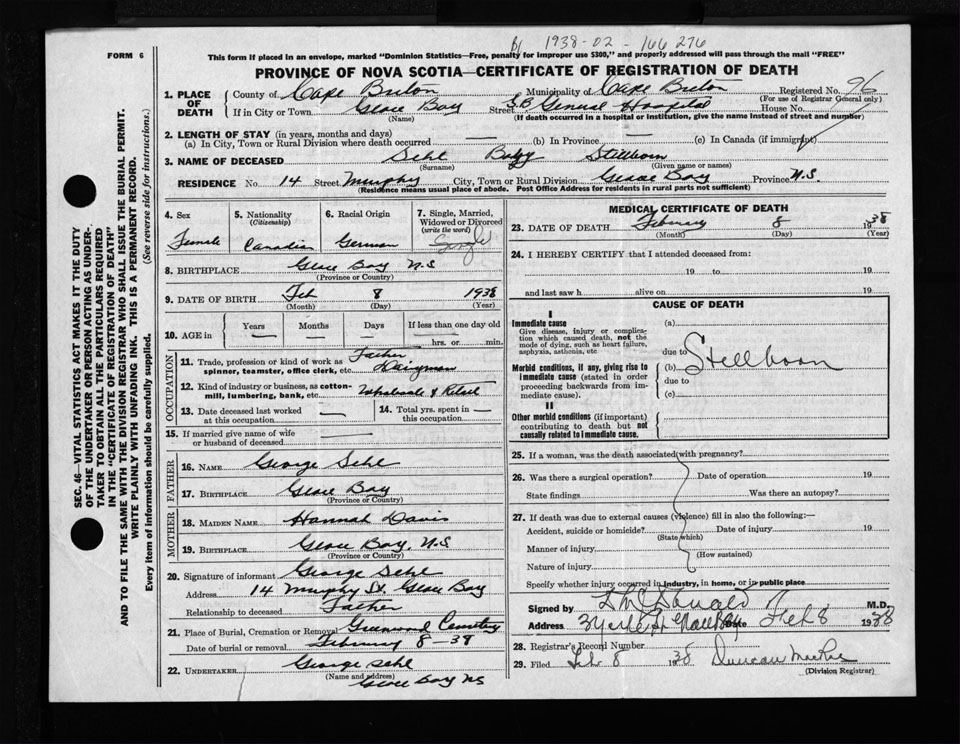 1938-02-166276
FORM 6
This form if placed in an envelope, marked "Dominion Statistics—Free, penalty for improper use $300," and properly addressed will pass through the mail "FREE"
PROVINCE OF NOVA SCOTIA—CERTIFICATE OF REGISTRATION OF DEATH
1. PLACE OF DEATH
County of Cape Breton Municipality of Cape Breton Registered No. 96
(For use of Registrar General only)
If in City or Town Glace Bay Street General Hospital House No.
(Name) (If death occurred in a hospital or institution, give the name instead of street and number)
2. LENGTH OF STAY (in years, months and days)
(a) In City, Town or Rural Division where death occurred — (b) In Province — (c) In Canada (if immigrant)
3. NAME OF DECEASED Sehl Baby Stillborn
(Surname) (Given name or names)
RESIDENCE No. 14 Street Murphy City, Town or Rural Division Glace Bay Province N.S.
(Residence means usual place of abode. Post Office Address for residents in rural parts not sufficient)
4. Sex
Female
5. Nationality
(Citizenship)
Canadian
6. Racial Origin
German
7. Single, Married, Widowed or Divorced
(write the word)
Single
8. BIRTHPLACE Glace Bay N S
(Province or Country)
9. DATE OF BIRTH Feb 8 1938
(Month) (Day) (Year)
10. AGE in Years Months Days If less than one day old
hrs. or min.
OCCUPATION
11. Trade, profession or kind of work as spinner, teamster, office clerk, etc. Father Dairyman
12. Kind of industry or business, as cotton-mill, lumbering, bank, etc. Wholesale & Retail
13. Date deceased last worked at this occupation —
14. Total yrs. spent in this occupation —
15. If married give name of wife or husband of deceased —
FATHER
16. NAME George Sehl
17. BIRTHPLACE Glace Bay
(Province or Country)
MOTHER
18. MAIDEN NAME Hannah Davis
19. BIRTHPLACE Glace Bay, N.S
(Province or Country)
20. Signature of informant George Sehl
Address 14 Murphy St. Glace Bay
Relationship to deceased Father
21. Place of Burial, Cremation or Removal Greenwood Cemetery
Date of burial or removal February 8-38
22. UNDERTAKER George Sehl
(Name and address)
Glace Bay NS
MEDICAL CERTIFICATE OF DEATH
23. DATE OF DEATH February 8 1938
(Month) (Day) (Year)
24. I HEREBY CERTIFY that I attended deceased from:
19 to 19
and last saw h alive on 19
CAUSE OF DEATH
I
Immediate cause
Give disease, injury or complication which caused death, not the mode of dying, such as heart failure, asphyxia, asthenia, etc
(a)
due to
Morbid conditions, if any, giving rise to immediate cause (stated in order proceeding backwards from immediate cause).
(b) Stillborn
due to
(c)
II
Other morbid conditions (if important) contributing to death but not causally related to immediate cause.
25. If a woman, was the death associated with pregnancy?
26. Was there a surgical operation? Date of operation 19
State findings Was there an autopsy?
27. If death was due to external causes (violence) fill in also the following:—
Accident, suicide or homicide? Date of injury 19
(State which)
Manner of injury
(How sustained)
Nature of injury
Specify whether injury occurred in industry, in home, or in public place
Signed by M.D.
Address Glace Bay Date Feb 8 1938
28. Registrar's Record Number
29. Filed Feb 8 1938 Duncan MacRae
(Division Registrar)
SEC. 46—VITAL STATISTICS ACT MAKES IT THE DUTY
OF THE UNDERTAKER OR PERSON ACTING AS UNDER-
TAKER TO OBTAIN ALL THE PARTICULARS REQUIRED
IN THE "CERTIFICATE OF REGISTRATION OF DEATH"
AND TO FILE THE SAME WITH THE DIVISION REGISTRAR WHO SHALL ISSUE THE BURIAL PERMIT.
WRITE PLAINLY WITH UNFADING INK. THIS IS A PERMANENT RECORD.
Every item of information should be carefully supplied. (See reverse side for instructions.)